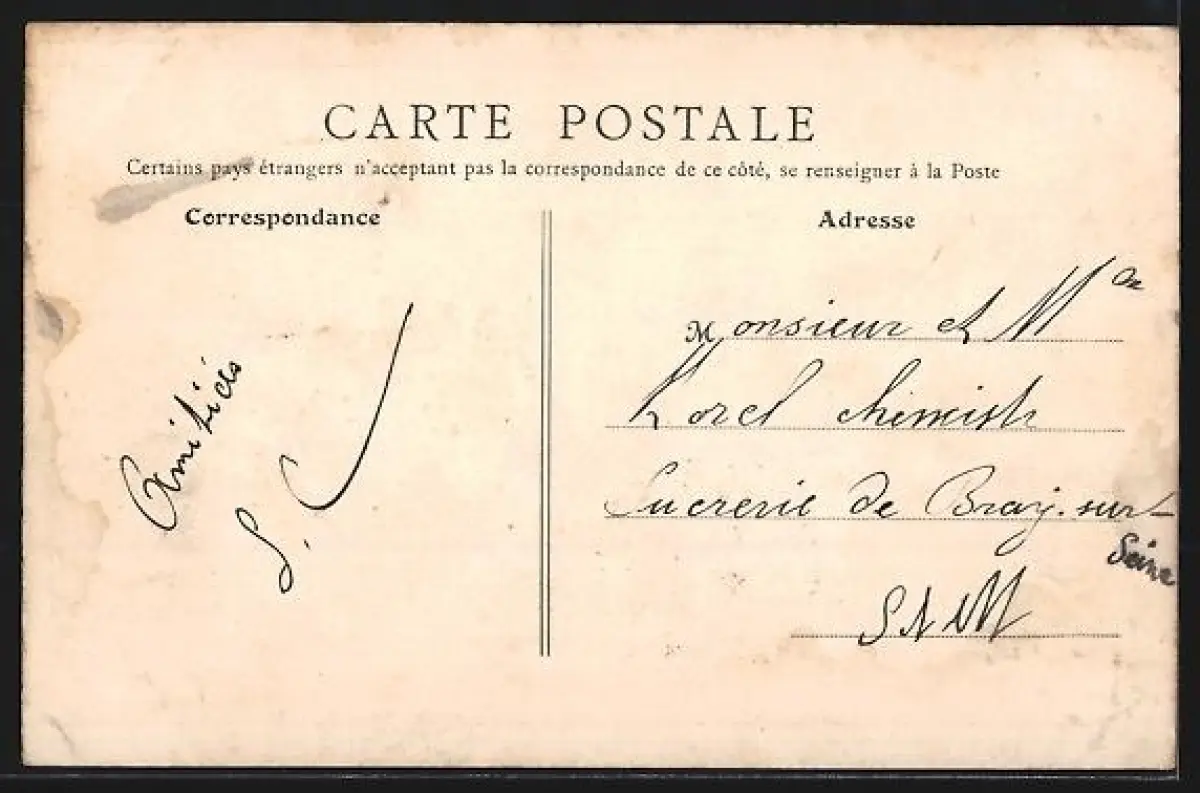 CARTE POSTALE
Certains pays étrangers n'acceptant pas la correspondance de ce côté, se renseigner à la Poste
Correspondance
Adresse
Amitiés
S. C
Monsieur et Me
chimiste
Sucrerie de Bray-sur-
Seine
S et M